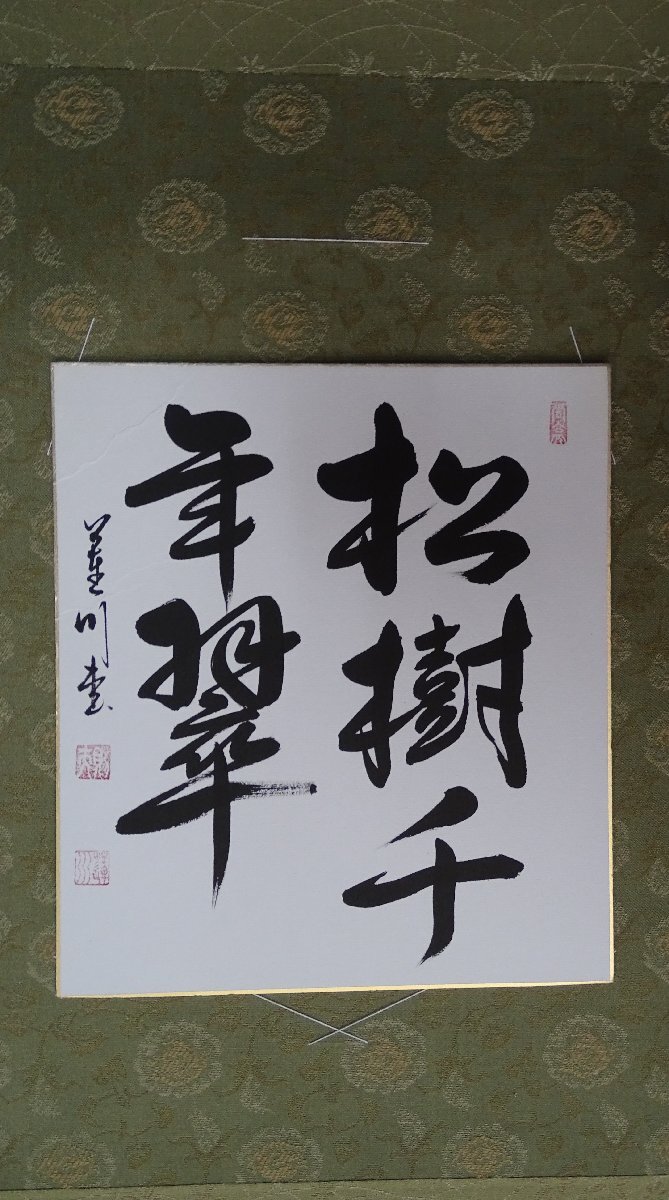 松樹千
年翠
蓮川書